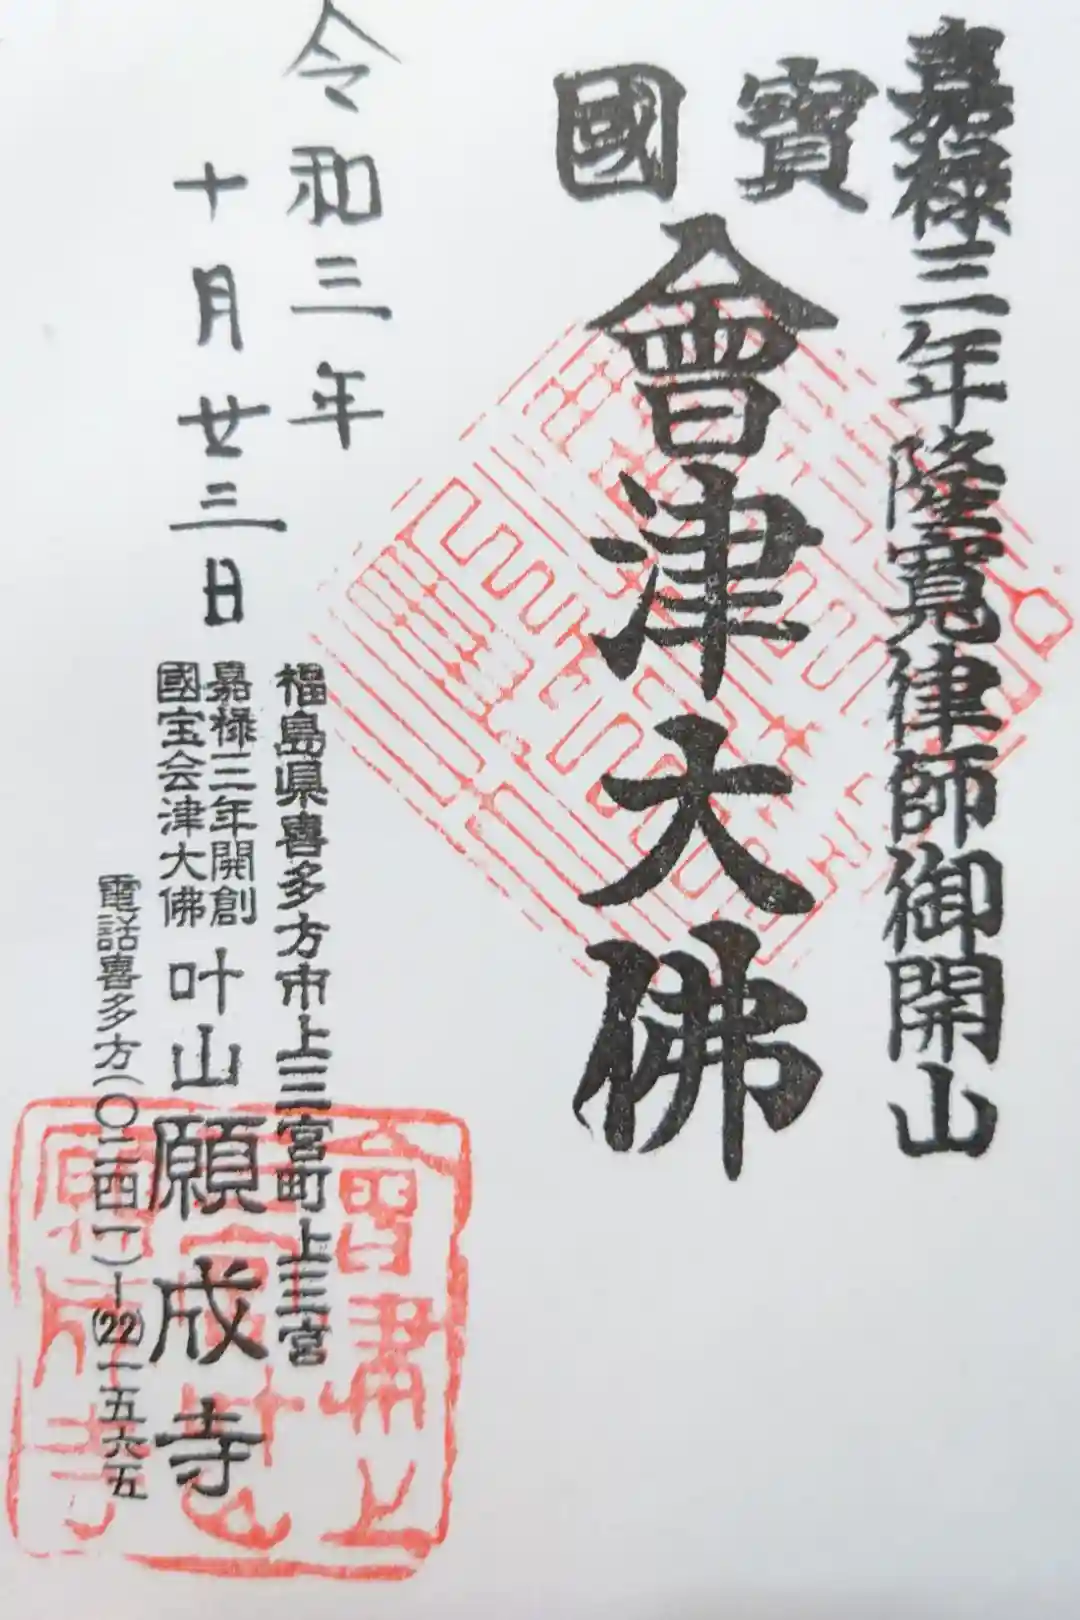 嘉祿三年隆寛律師御開山
國寶
會津大佛
令和三年
十月廿三日
福島県喜多方市上三宮町上三宮
嘉祿三年開創
國宝会津大佛
叶山願成寺
電話喜多方(〇二四一)-(22)一五六五